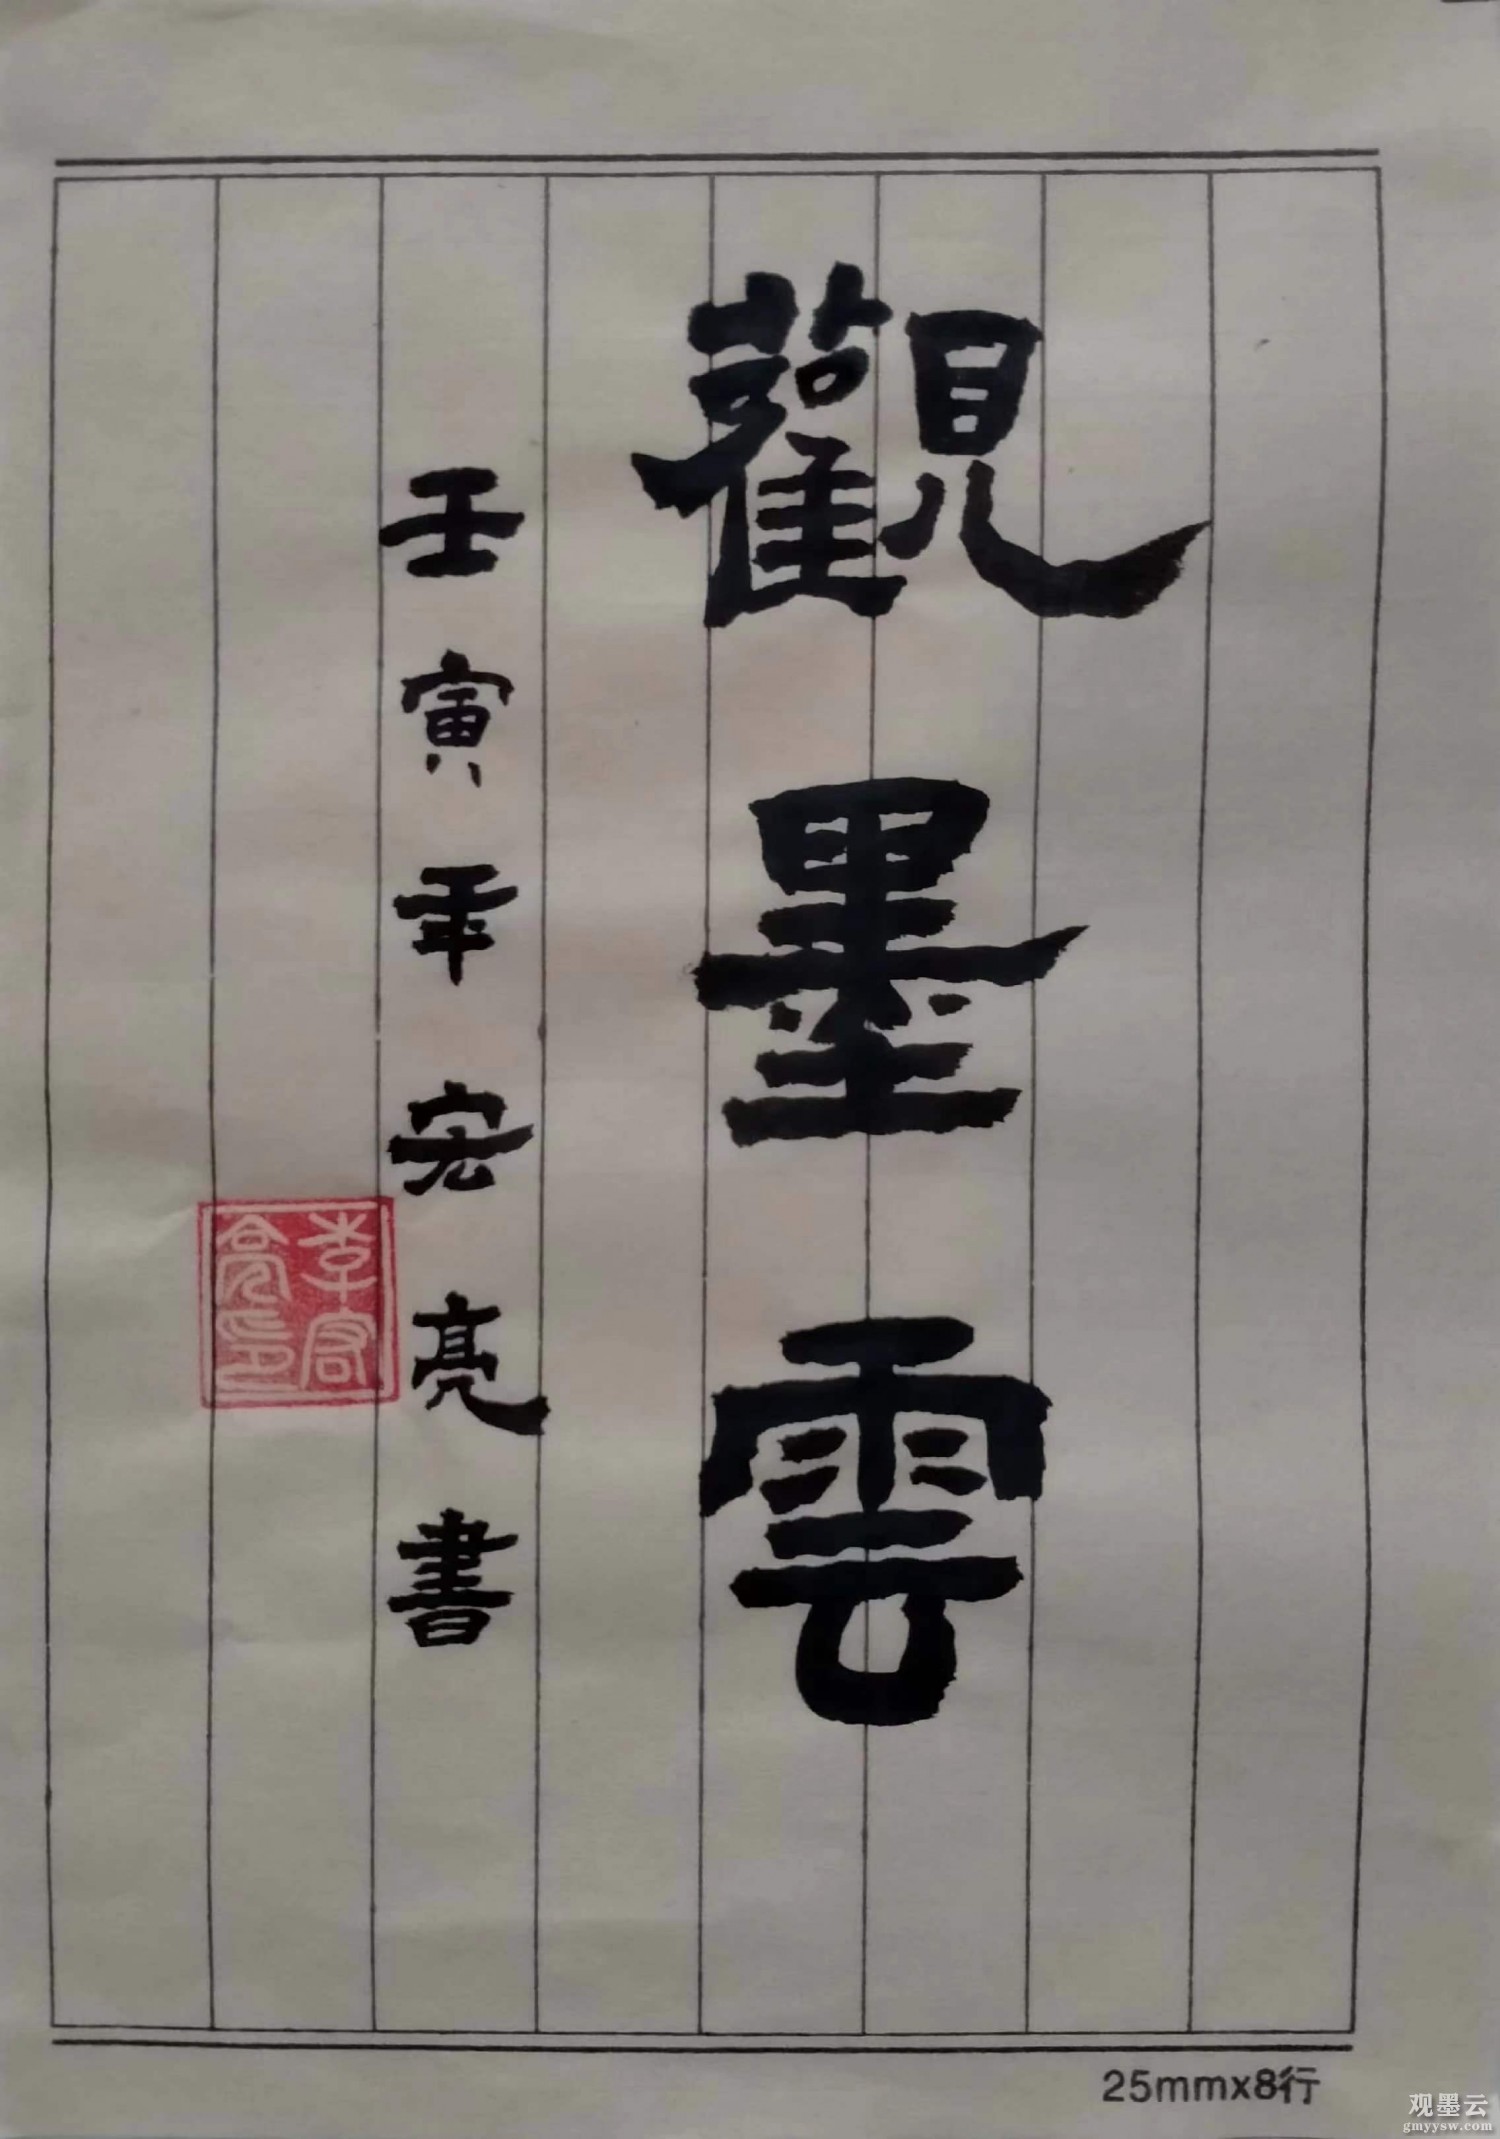 觀墨雲
壬寅年宏亮書
李宏亮印
25mmx8行
观墨云
gmyysw.com